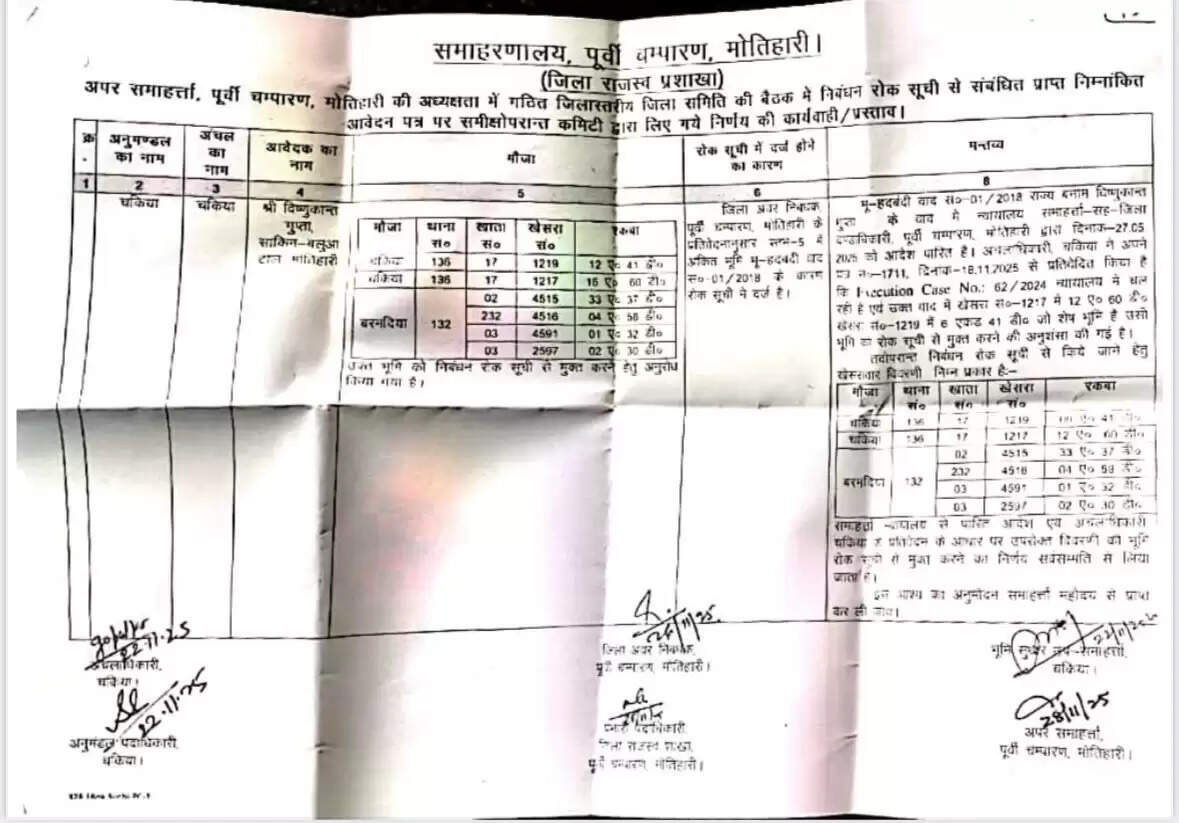 समाहरणालय, पूर्वी चम्पारण, मोतिहारी।
(जिला राजस्व प्रशाखा)
अपर समाहर्त्ता, पूर्वी चम्पारण, मोतिहारी की अध्यक्षता में गठित जिलास्तरीय जिला समिति की बैठक मे निबंधन रोक सूची से संबंधित प्राप्त निम्नांकित
आवेदन पत्र पर समीक्षोपरान्त कमिटी द्वारा लिए गये निर्णय की कार्यवाही/प्रस्ताव।
क्र. अनुमण्डल का नाम अंचल का नाम आवेदक का नाम मौजा रोक सूची में दर्ज होने का कारण मन्तव्य
1 2 3 4 5 6 8
चकिया
चकिया
श्री विष्णुकान्त
गुप्ता,
साकिन-बलुआ
टाल मोतिहारी
मौजा थाना सं० खाता सं० खेसरा सं० रकबा
चकिया 136 17 1219 12 ए० 41 डी०
चकिया 136 17 1217 16 ए० 60 डी०
बरमदिया 132 02 4515 33 ए० 37 डी०
232 4516 04 ए० 58 डी०
03 4591 01 ए० 32 डी०
03 2597 02 ए० 30 डी०
उक्त भूमि को निबंधन रोक सूची से मुक्त करने हेतु अनुरोध
किया गया है।
जिला अवर निबंधक,
पूर्वी चम्पारण, मोतिहारी के
प्रतिवेदनानुसार स्तम्भ-5 में
अंकित भूमि भू-हदबंदी वाद
स०-01/2018 के कारण
रोक सूची मे दर्ज है।
भू-हदबंदी वाद स०-01/2018 राज्य बनाम विष्णुकान्त
गुप्ता के वाद मे न्यायालय समाहर्त्ता-सह-जिला
दण्डाधिकारी, पूर्वी चम्पारण, मोतिहारी द्वारा दिनांक-27.05
2025 को आदेश पारित है। अंचलाधिकारी, चकिया ने अपने
पत्र न०-1711, दिनांक-18.11.2025 से प्रतिवेदित किया है
कि Execution Case No.: 62/2024 न्यायालय मे चल
रही है एवं उक्त वाद में खेसरा सं०-1217 में 12 ए० 60 डी०
खेसरा सं०-1219 में 6 एकड़ 41 डी० जो शेष भूमि है उसी
भूमि का रोक सूची से मुक्त करने की अनुशंसा की गई है।
तदोपरान्त निबंधन रोक सूची से किये जाने हेतु
खेसरावार विवरणी निम्न प्रकार है:-
मौजा थाना सं० खाता सं० खेसरा सं० रकबा
चकिया 136 17 1219 ए० 41 डी०
चकिया 136 17 1217 12 ए० 60 डी०
बरमदिया 132 02 4515 33 ए० 37 डी०
232 4516 04 ए० 58 डी०
03 4591 01 ए० 32 डी०
03 2597 02 ए० 30 डी०
समाहर्त्ता से पारित आदेश एवं अंचलाधिकारी
चकिया के प्रतिवेदन के आधार पर उपरोक्त विवरणी की भूमि
रोक सूची से मुक्त करने का निर्णय सर्वसम्मति से लिया
जाता है।
इस आशय का अनुमोदन समाहर्त्ता महोदय से प्राप्त
कर ली जाय।
22.11.25
अंचलाधिकारी,
चकिया।
22.11.25
अनुमंडल पदाधिकारी,
चकिया।
26/11/25
जिला अवर निबंधक,
पूर्वी चम्पारण, मोतिहारी।
प्रभारी पदाधिकारी,
जिला राजस्व शाखा,
पूर्वी चम्पारण, मोतिहारी।
भूमि सुधार उप-समाहर्त्ता,
चकिया।
28/11/25
अपर समाहर्त्ता,
पूर्वी चम्पारण, मोतिहारी।